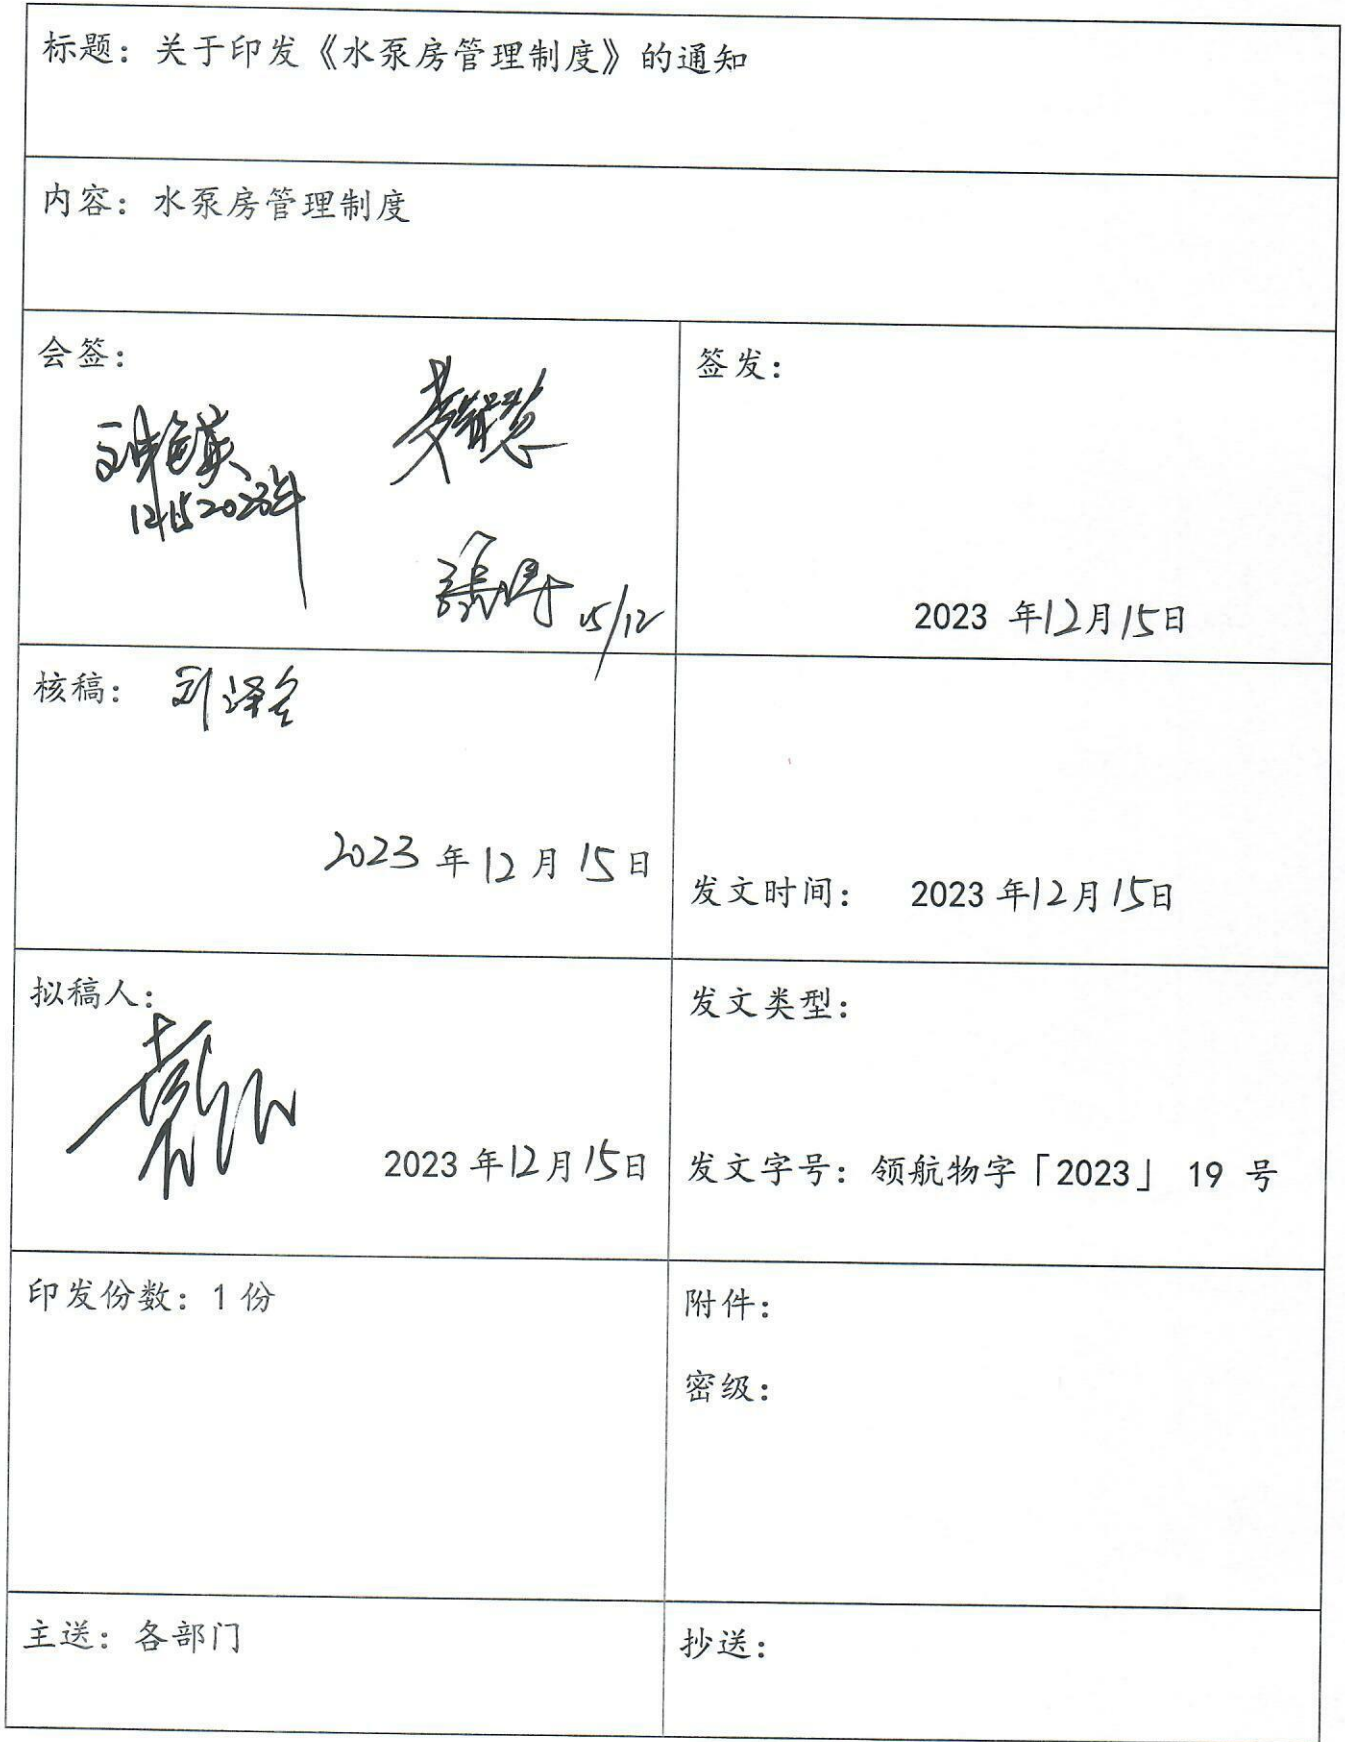 标题：关于印发《水泵房管理制度》的通知
内容：水泵房管理制度
会签：
15/12
签发：
2023 年12月15日
核稿：
2023 年 12 月 15 日
发文时间： 2023 年12月15日
拟稿人：
2023 年12月15日
发文类型：
发文字号：领航物字「2023」 19 号
印发份数：1 份
附件：
密级：
主送：各部门
抄送：